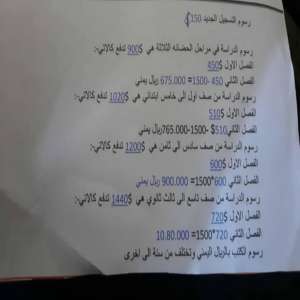 رسوم التسجيل الجديد 150$
رسوم الدراسة في مراحل الحضانه الثلاثة هي 900$ تدفع كالاتي:-
الفصل الاول 450$
الفصل الثاني 450 -1500= 675.000 ريال يمني
رسوم الدراسة من صف اول الى خامس ابتدائي هي 1020$ تدفع كالاتي:-
الفصل الاول 510$
الفصل الثاني510$ -1500-765.000ريال يمني
رسوم الدراسة من صف سادس الى ثامن هي 1200$ تدفع كالاتي:-
الفصل الاول 600$
الفصل الثاني 600*1500= 900.000 ريال يمني
رسوم الدراسة من صف تاسع الى ثالث ثانوي هي 1440$ تدفع كالاتي:-
الفصل الاول 720$
الفصل الثاني 720*1500= 10.80.000
رسوم الكتب بالريال اليمني وتختلف من سنة الى اخرى